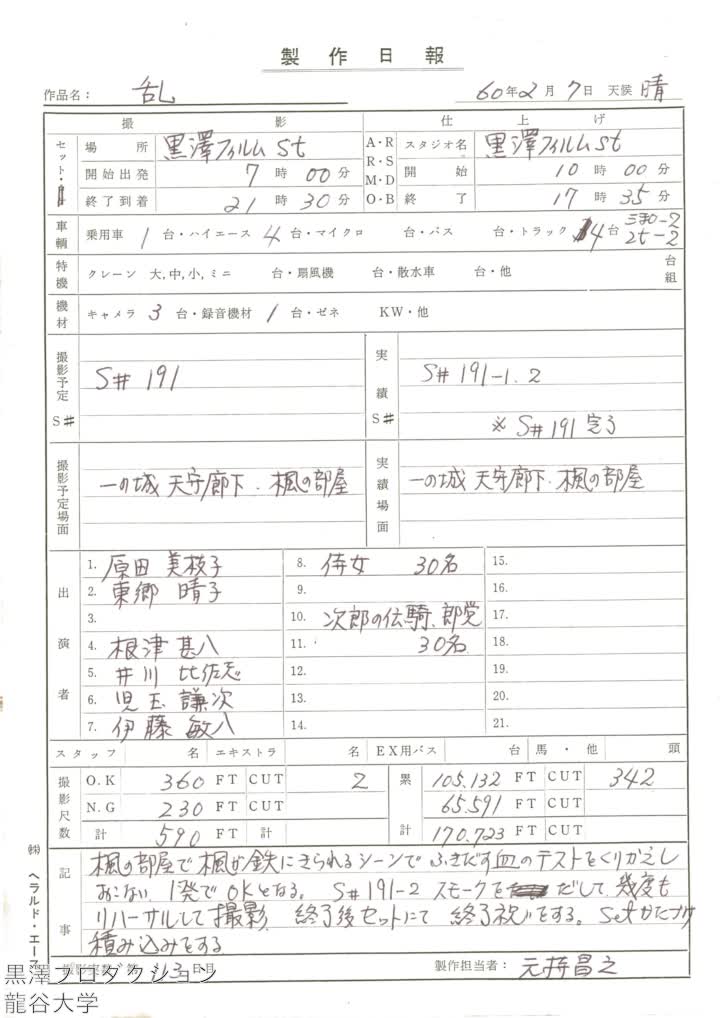 製作日報
作品名： 乱 60年2月7日 天候 晴
撮影 仕上げ
セット・
場所 黒澤フィルムSt A・R スタジオ名 黒澤フィルムSt
開始出発 7時00分 R・S 開始 10時00分
終了到着 21時30分 M・D O・B 終了 17時35分
車輌 乗用車 1台・ハイエース 4台・マイクロ 台・バス 台・トラック 4台 2t-2
特機 クレーン 大,中,小,ミニ 台・扇風機 台・散水車 台・他 台組
機材 キャメラ 3台・録音機材 1台・ゼネ KW・他
撮影予定 S# S# 191 実績 S# S# 191-1.2
※ S# 191 完了
撮影予定場面 一の城 天守廊下・楓の部屋 実績場面 一の城 天守廊下・楓の部屋
出演者
1. 原田 美枝子 8. 侍女 30名 15.
2. 東郷 晴子 9. 16.
3. 10. 次郎の伝騎、郎党 17.
4. 根津 甚八 11. 30名 18.
5. 井川 比佐志 12. 19.
6. 児玉 謙次 13. 20.
7. 伊藤 敏八 14. 21.
スタッフ 名 エキストラ 名 EX用バス 台 馬・他 頭
撮影尺数 O.K 360 FT CUT 2 累計 105.132 FT CUT 342
N.G 230 FT CUT 65.591 FT CUT
計 590 FT CUT 170.723 FT CUT
記事
楓の部屋で楓が鉄にきられるシーンでふきだす血のテストをくりかえし
おこない、1発でOKとなる。 S#191-2 スモークを だして、幾度も
リハーサルして撮影 終了後セットにて 終了祝いをする。Setかたづけ
積み込みをする
撮影実数 第 113日目 製作担当者： 元持昌之
㈱ ヘラルド・エース
黒澤プロダクション
龍谷大学